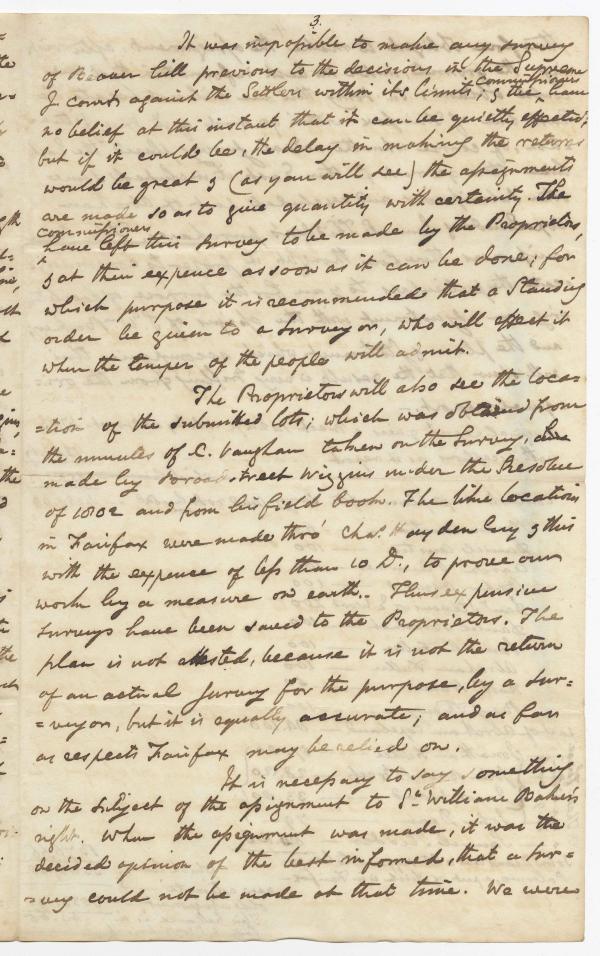 3.
It was impossible to make any survey
of Beaver hill previous to the decisions in the Supreme
J. courts against the Settlers within its limits; & the commissioners have
no belief at this instant that it can be quietly effected;
but if it could be, the delay in making the returns
would be great & (as you will see) the assignments
are made so as to give quantity with certainty. The
commissioners
have left this survey to be made by the Proprietors,
& at their expence as soon as it can be done; for
which purpose it is recommended that a Standing
order be given to a Surveyor, who will effect it
when the temper of the people will admit.
The Proprietors will also see the loca=
=tion of the submitted lots; which was obtained from
the minutes of C. Vaughan taken on the Survey,
made by Bradstreet Wiggins under the Resolve
of 1802 and from his field book. The like locations
in Fairfax were made thro' Chas. Hayden Esq & this
with the expence of less than 10 D., to prove our
work by a measure on earth. Thus expensive
surveys have been saved to the Proprietors. The
plan is not attested, because it is not the return
of an actual survey for the purpose, by a Sur=
=veyor, but it is equally accurate; and as far
as respects Fairfax may be relied on.
It is necessary to say something
on the subject of the assignment to Sr. William Baker's
right. When the assignment was made, it was the
decided opinion of the best informed, that a Sur=
=vey could not be made at that time. We were